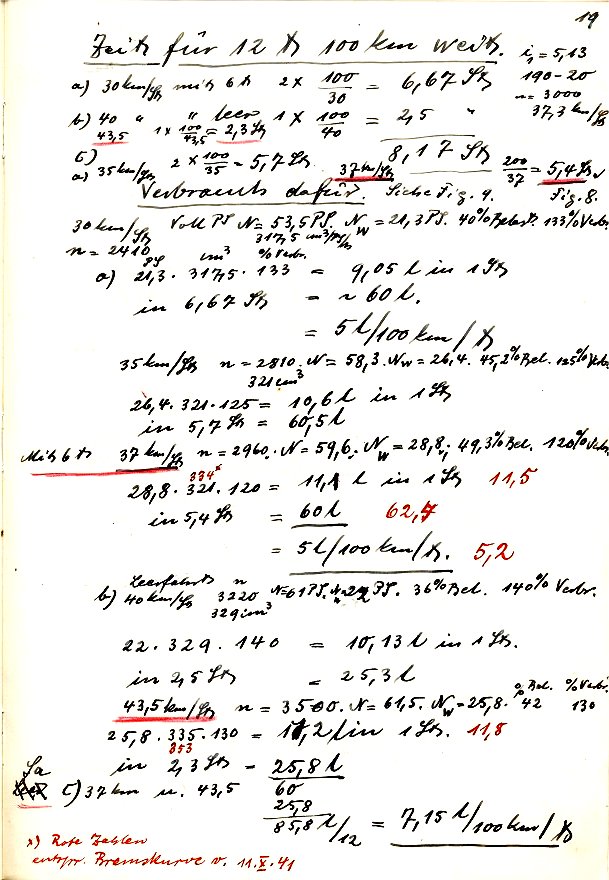 19
Zeit für 12 t 100 km weit. i₁ = 5,13
190-20
n = 3000
37,3 km/St
a) 30 km/St mit 6 t 2 x 100/30 = 6,67 St
b) 40 " " leer 1 x 100/40 = 2,5 "
43,5 1 x 100/43,5 = 2,3 St
8,17 St
c)
a) 35 km/St 2 x 100/35 = 5,7 St 37 km/St 200/37 = 5,4 St
Verbrauch dafür. Siehe Fig. 9. Fig. 8.
30 km/St Voll PS N = 53,5 PS. N_W = 21,3 PS. 40% Belast. 133% Verbr.
n = 2410 317,5 cm³/PS/St
PS cm³ % Verbr.
a) 21,3 . 317,5 . 133 = 9,05 l in 1 St
in 6,67 St = ~ 60 l.
= 5 l/100 km/t
35 km/St n = 2810. N = 58,3. N_W = 26,4. 45,2% Bel. 125% Verbr.
321 cm³
26,4 . 321 . 125 = 10,6 l in 1 St
in 5,7 St = 60,5 l
Mit 6 t 37 km/St n = 2960. N = 59,6. N_W = 28,8. 49,3% Bel. 120% Verbr.
334 x
28,8 . 321 . 120 = 11,1 l in 1 St 11,5
in 5,4 St = 60 l 62,7
= 5 l/100 km/t. 5,2
Leerfahrt n
b) 40 km/St 3220 N = 61 PS. N_W = 22 PS. 36% Bel. 140% Verbr.
329 cm³
22 . 329 . 140 = 10,13 l in 1 St.
in 2,5 St = 25,3 l
% Bel. % Verbr.
43,5 km/St n = 3500. N = 61,5. N_W = 25,8. 42 130
25,8 . 335 . 130 = 11,2 l in 1 St. 11,8
353
in 2,3 St = 25,8 l
c) 37 km u. 43,5 60
25,8
85,8 l/12 = 7,15 l/100 km/t
x) Rote Zahlen
entspr. Bremskurve v. 11.X.41